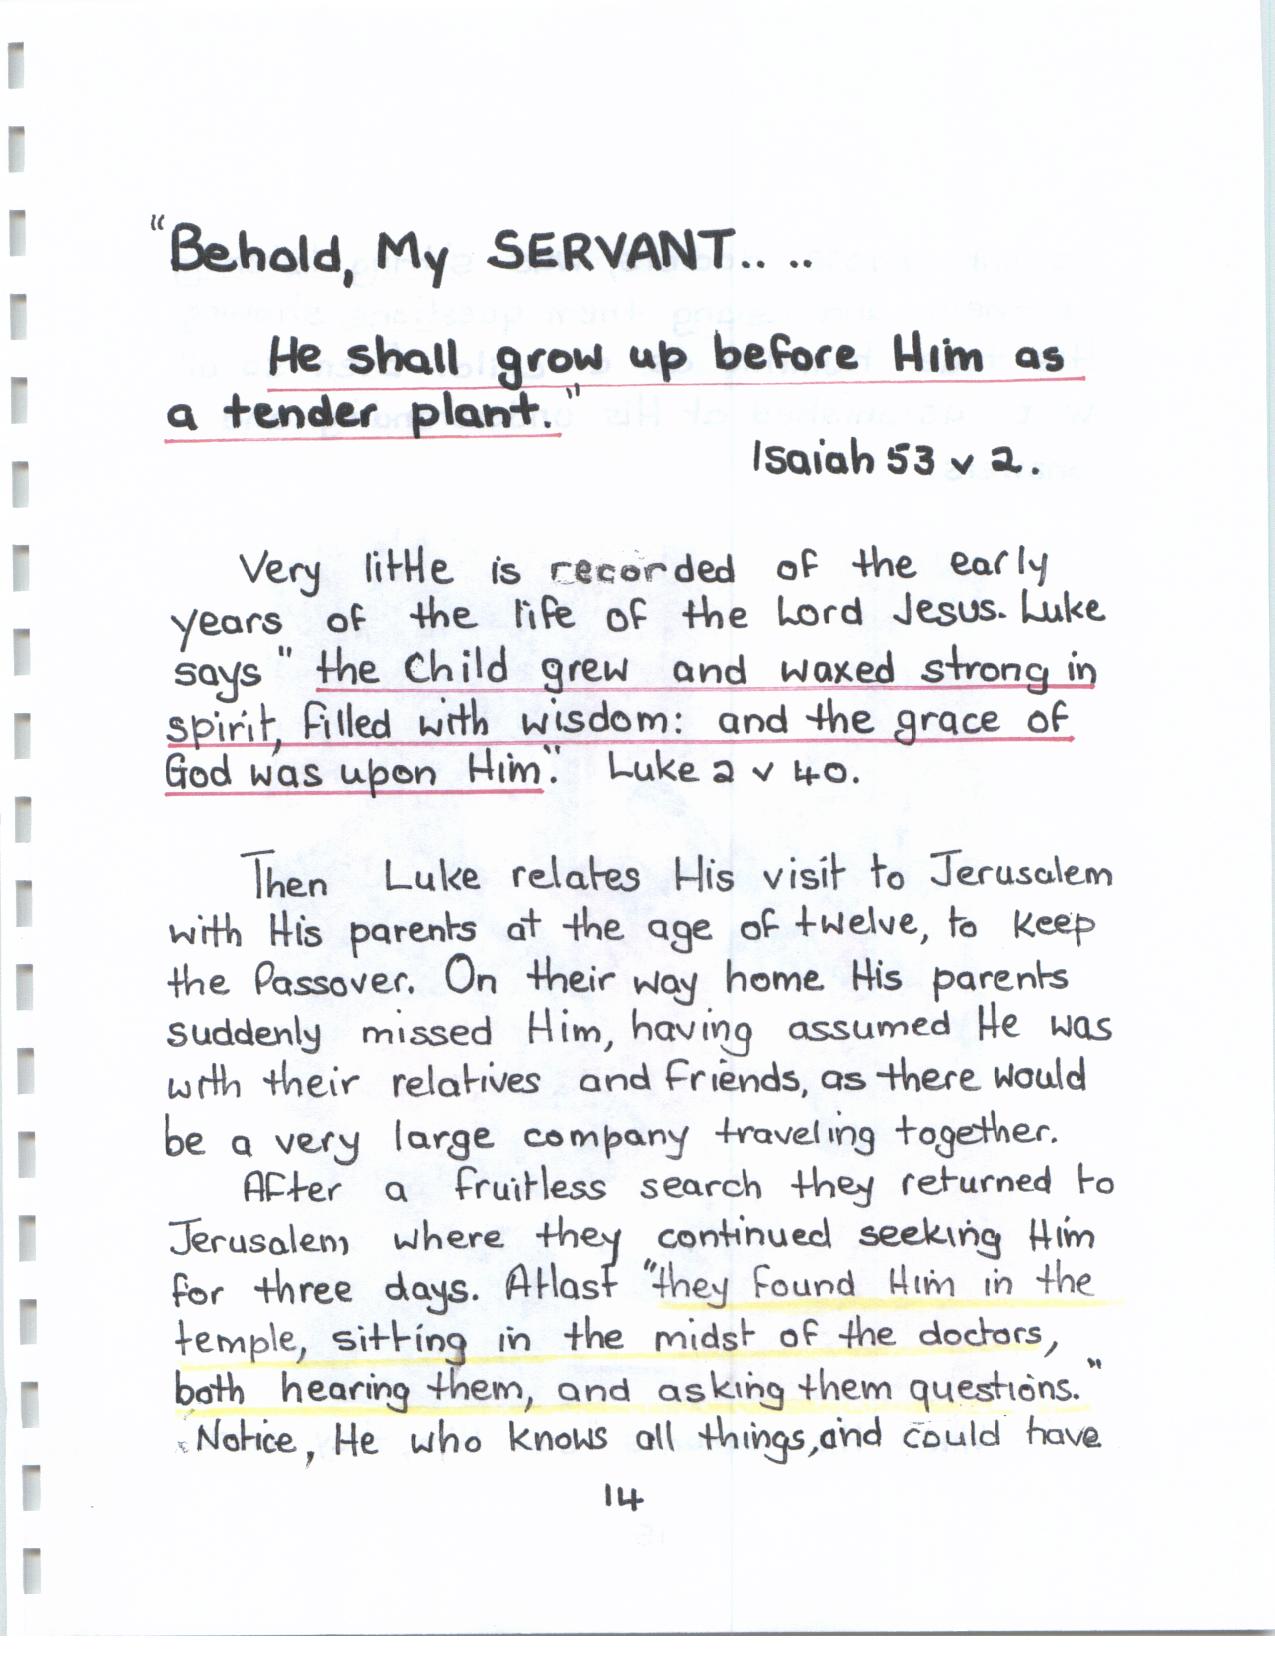 "Behold, My SERVANT.. ..
He shall grow up before Him as
a tender plant."
Isaiah 53 v 2.
Very little is recorded of the early
years of the life of the Lord Jesus. Luke
says " the Child grew and waxed strong in
spirit, filled with wisdom: and the grace of
God was upon Him". Luke 2 v 40.
Then Luke relates His visit to Jerusalem
with His parents at the age of twelve, to keep
the Passover. On their way home His parents
suddenly missed Him, having assumed He was
with their relatives and friends, as there would
be a very large company traveling together.
After a fruitless search they returned to
Jerusalem where they continued seeking Him
for three days. At last "they found Him in the
temple, sitting in the midst of the doctors,
both hearing them, and asking them questions."
Notice, He who knows all things, and could have
14